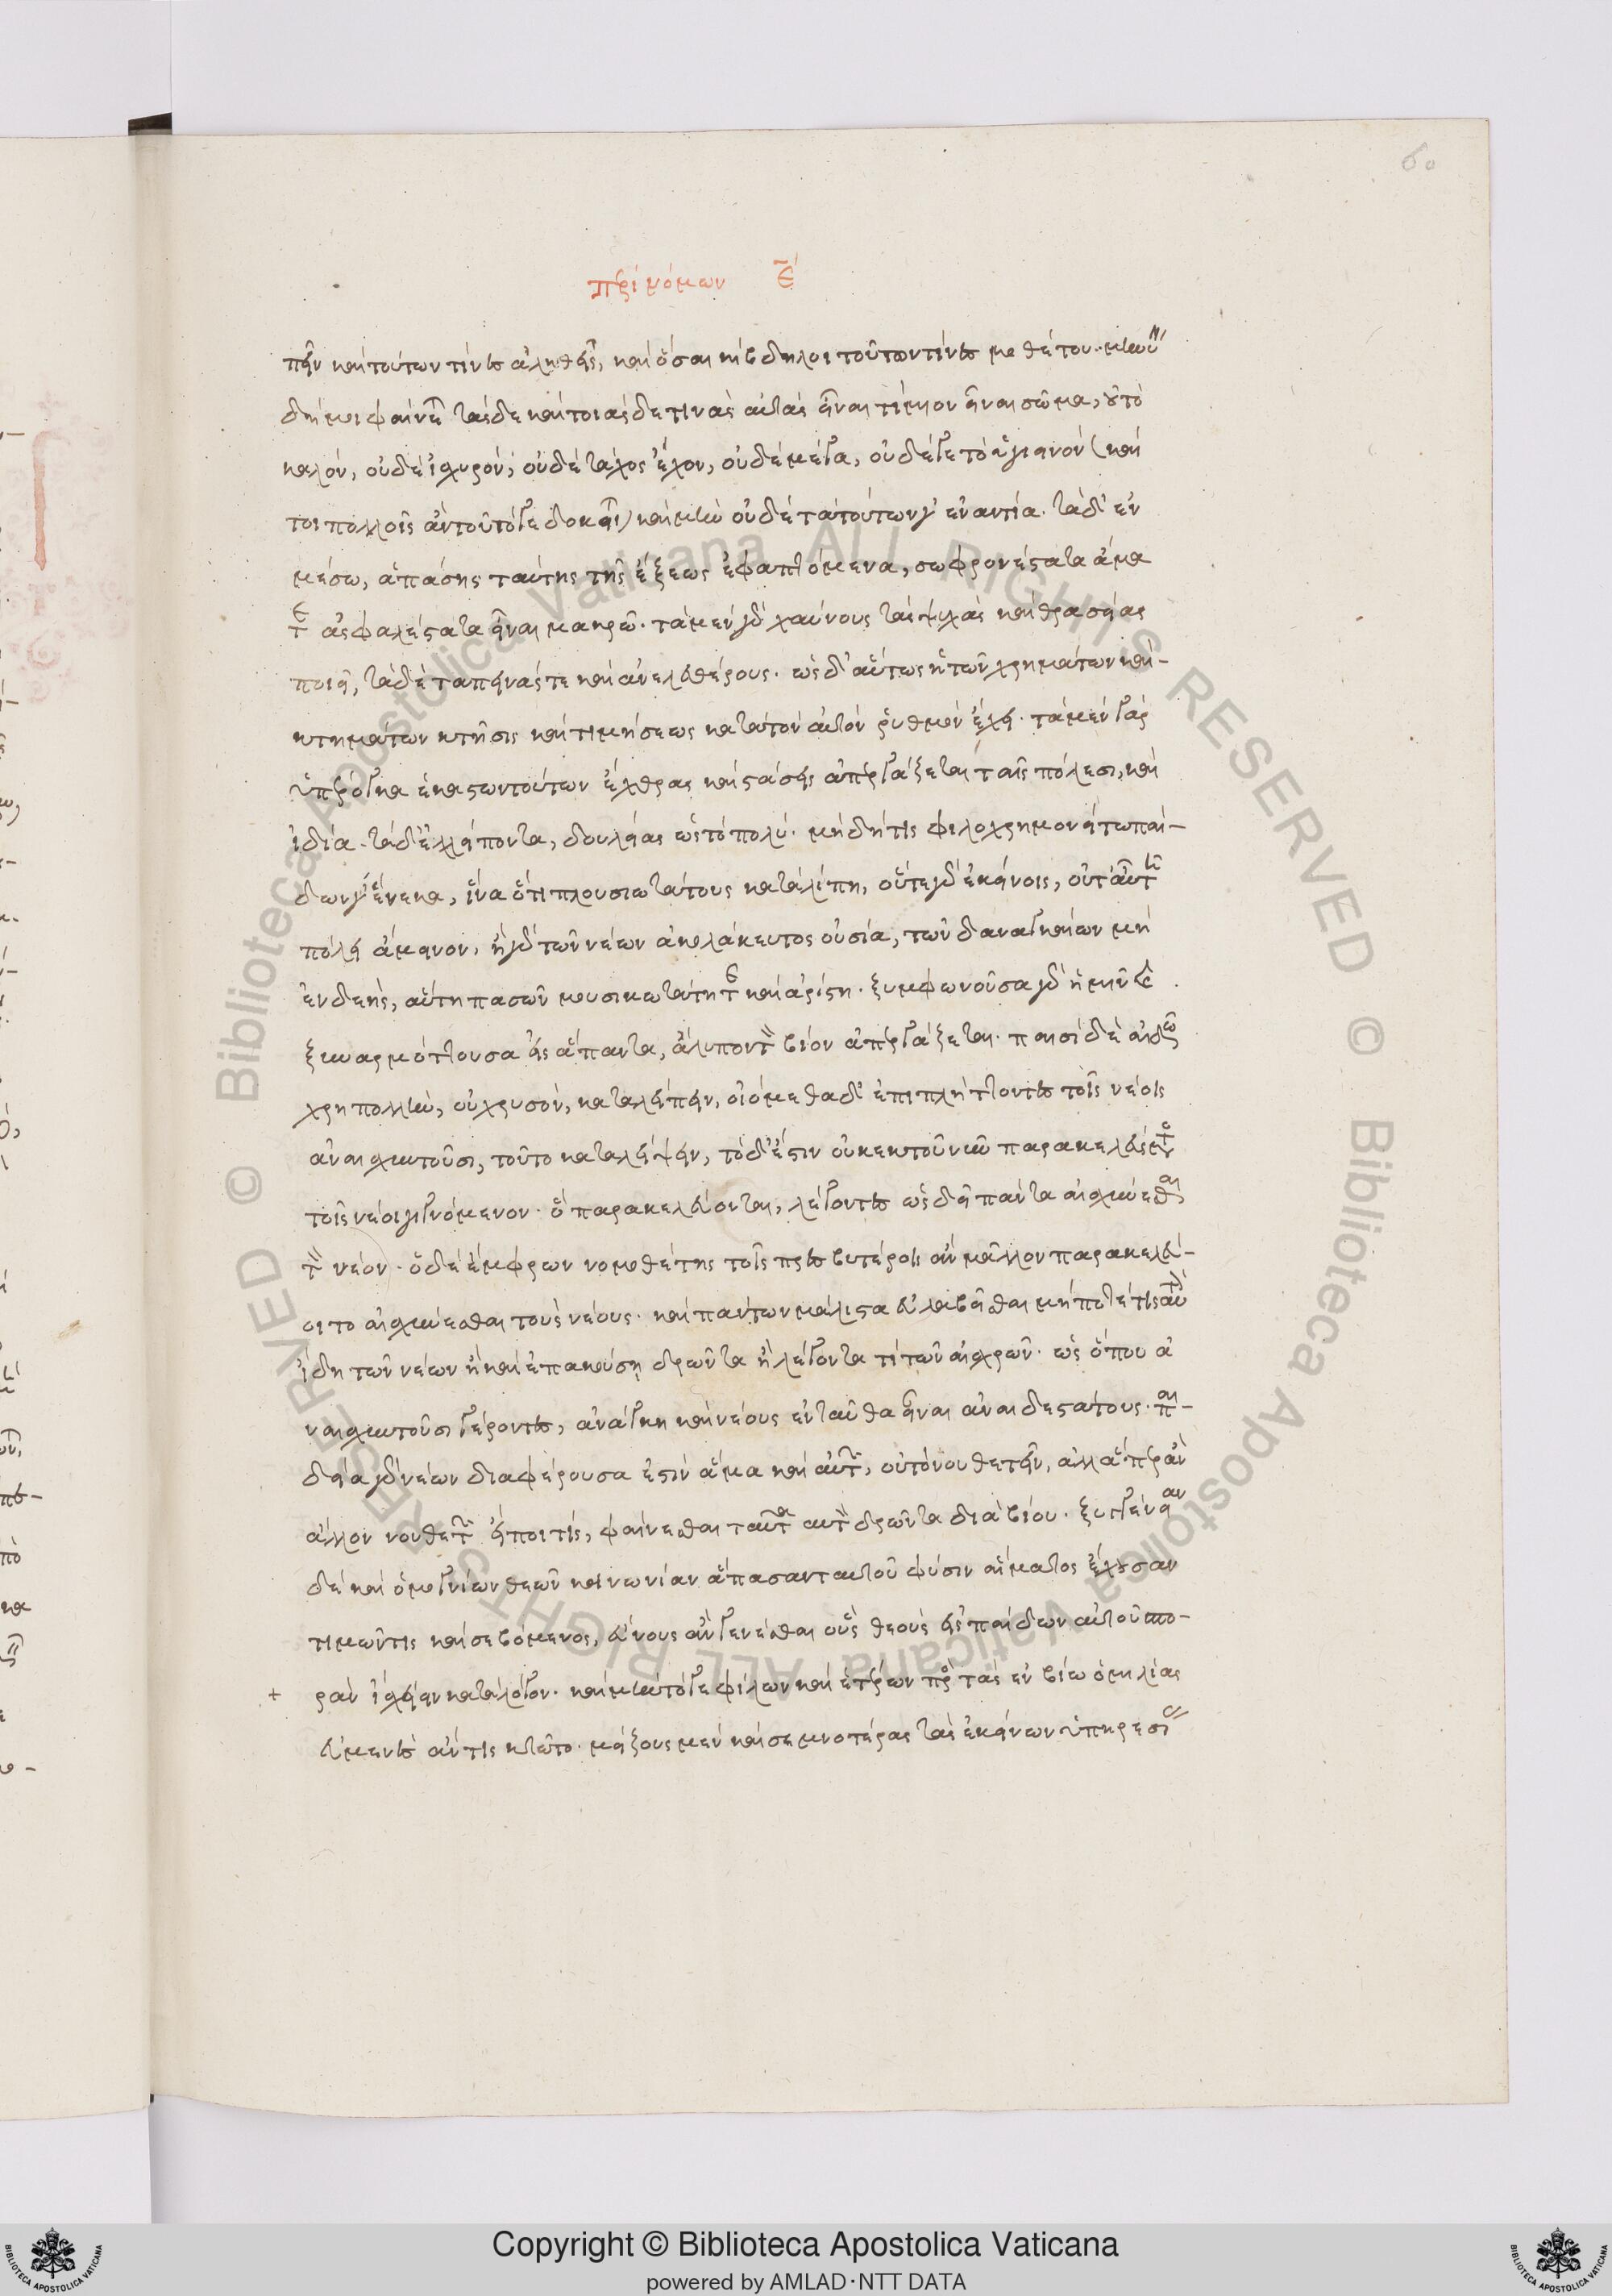 60
περὶ νόμων ε
πεῖν καὶ τούτων τίνες ἀληθεῖς, καὶ ὅσαι κίβδηλοι τοῦτων τίνες νομοθέτου. μηνύειν
δή μοι φαίνεται τάσδε καὶ τοιάσδε τινὰς αὐτὰς εἶναι τίμιον εἶναι σῶμα, οὐ τὸ
καλόν, οὐδὲ ἰσχυρόν, οὐδὲ τάχος ἔχον, οὐδὲ μέγα, οὐδέ γε τὸ ὑγιεινόν (καί
τοι πολλοῖς ἂν τοῦτό γε δοκεῖ) καὶ μὴν οὐδὲ τὰ τούτων γ' ἐναντία. τὰ δ' ἐν
μέσω, ἁπάσης ταύτης τῆς ἕξεως ἐφαπτόμενα, σωφρονέστατα ἅμα
τε ἀσφαλέστατα εἶναι μακρῶ. τὰ μὲν γὰρ χαύνους τὰς ψυχὰς καὶ θρασείας
ποιεῖ, τὰ δὲ ταπεινάς τε καὶ ἀνελευθέρους. ὡς δ' αὕτως ἡ τῶν χρημάτων καὶ-
κτημάτων κτῆσις καὶ τιμήσεως κατὰ τὸν αὐτὸν ῥυθμὸν ἔχει. τὰ μὲν γὰρ
ὑπέρογκα ἑκάστων τούτων ἔχθρας καὶ στάσεις ἀπεργάζεται ταῖς πόλεσι, καὶ
ἰδία. τὰ δ' ἐλλείποντα, δουλείας ὡς τὸ πολύ. μὴ δή τις φιλοχρημονείτω παί-
δων γ' ἕνεκα, ἵνα ὅτι πλουσιωτάτους καταλίπη, οὔτε γὰρ ἐκείνοις, οὔτ' αὖ τῆ
πόλει ἄμεινον, ἡ γὰρ τῶν νέων ἀκολάκευτος οὐσία, τῶν δ' ἀναγκαίων μὴ
ἐνδεής, αὕτη πασῶν μουσικωτάτη τε καὶ ἀρίστη. ξυμφωνοῦσα γὰρ ἡμῖν καὶ
ξυναρμόττουσα εἰς ἅπαντα, ἄλυπον τὸν βίον ἀπεργάζεται. παισὶ δὲ αἰδῶ
χρὴ πολλήν, οὐ χρυσόν, καταλείπειν, οἰόμεθα δ' ἐπιπλήττοντες τοῖς νέοις
ἀναισχυντοῦσι, τοῦτο καταλείψειν, τὸ δ' ἔστιν οὐκ ἐκ τοῦ νῦν παρακελεύματος
τοῖς νέοις γιγνόμενον. ὃ παρακελεύονται, λέγοντες ὡς δεῖ πάντα αἰσχύνεσθαι
τὸν νέον. ὁ δὲ ἔμφρων νομοθέτης τοῖς πρεσβυτέροις ἂν μᾶλλον παρακελεύ-
οιτο αἰσχύνεσθαι τοὺς νέους. καὶ πάντων μάλιστα εὐλαβεῖσθαι μή ποτέ τις αὐτὸν
ἴδη τῶν νέων ἢ καὶ ἐπακούση δρῶντα ἢ λέγοντά τι τῶν αἰσχρῶν. ὡς ὅπου ἀ
ναισχυντοῦσι γέροντες, ἀνάγκη καὶ νέους ἐνταῦθα εἶναι ἀναιδεστάτους. παι-
δεία γὰρ νέων διαφέρουσα ἐστὶν ἅμα καὶ αὐτῶν, οὐ τὸ νουθετεῖν, ἀλλ' ἅπερ ἂν
ἄλλον νουθετῶν εἴποι τις, φαίνεσθαι ταῦτα αὐτὸν δρῶντα διὰ βίου. ξυγγένειαν
δὲ καὶ ὁμογνίων θεῶν κοινωνίαν ἅπασαν ταυτοῦ φύσιν αἵματος ἔχουσαν
τιμῶν τις καὶ σεβόμενος, εὔνους ἂν γενέθαι οὓς θεοὺς εἰς παίδων αὐτοῦ σπο-
ρὰν ἴσχειν κατὰ λόγον. καὶ μὴν τό γε φίλων καὶ ἑτέρων πρὸς τὰς ἐν βίω ὁμιλίας
εὐμενεῖς ἄν τις κτῶτο. μείζους μὲν καὶ σεμνοτέρας τὰς ἐκείνων ὑπηρεσίας
Copyright © Biblioteca Apostolica Vaticana
powered by AMLAD·NTT DATA